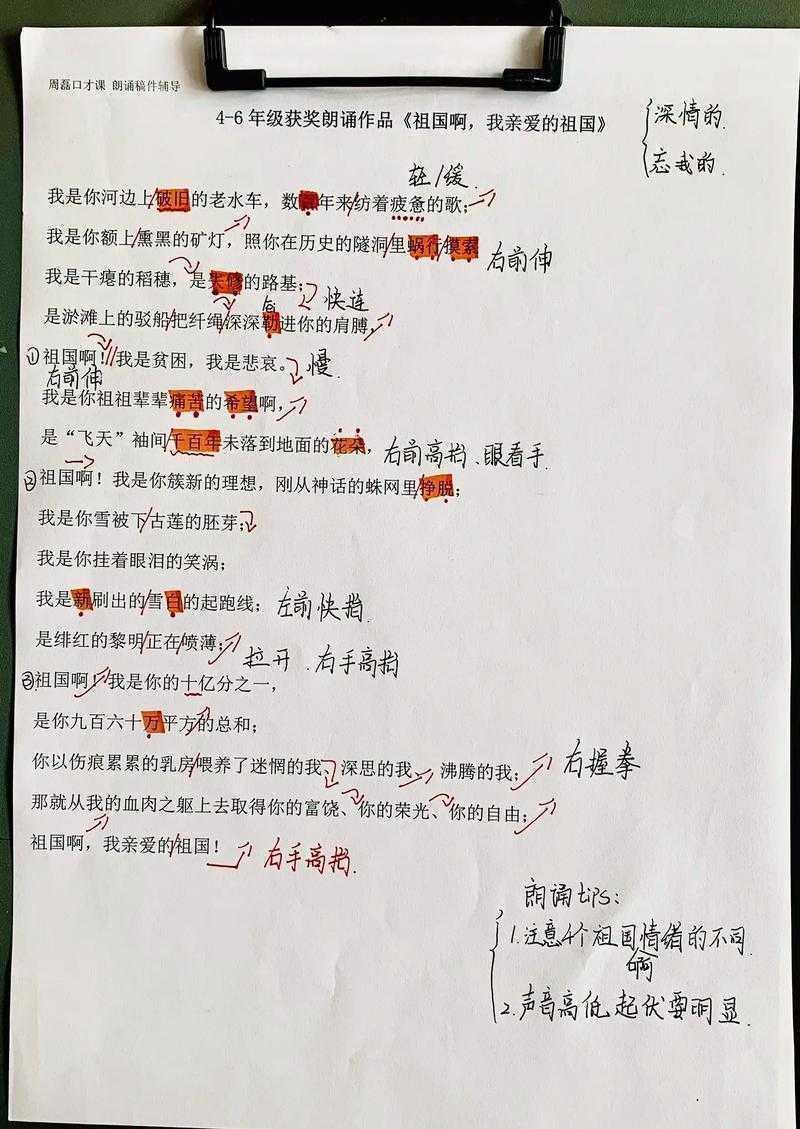 周磊口才课 朗诵稿件辅导
4-6年级获奖朗诵作品《祖国啊，我亲爱的祖国》
深情的
忘我的
轻/缓
我是你河边上破旧的老水车，数百年来纺着疲惫的歌；
我是你额上熏黑的矿灯，照你在历史的隧洞里蜗行摸索
右前伸
我是干瘪的稻穗，是失修的路基；
快连
是淤滩上的驳船把纤绳深深勒进你的肩膊，
①祖国啊！我是贫困，我是悲哀。
慢
右前伸
我是你祖祖辈辈痛苦的希望啊，
是“飞天”袖间千百年未落到地面的花朵，
右前高抬、眼看手
②祖国啊！我是你簇新的理想，刚从神话的蛛网里挣脱；
我是你雪被下古莲的胚芽；
我是你挂着眼泪的笑涡；
我是新刷出的雪白的起跑线；
左前快指
是绯红的黎明正在喷薄；
拉开.右手高抬
③祖国啊！我是你的十亿分之一，
是你九百六十万平方的总和；
你以伤痕累累的乳房喂养了迷惘的我、深思的我、沸腾的我；
右握拳
那就从我的血肉之躯上去取得你的富饶、你的荣光、你的自由；
祖国啊，我亲爱的祖国！
右手高抬.
朗诵tips：
1.注意4个祖国啊情绪的不同
2.声音高低起伏要明显.